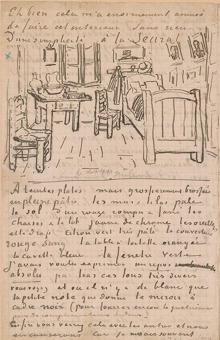 Eh bien cela m'a énormément amusé
de faire cet intérieur sans rien
D'une simplicité à la Seurat
A teintes plates mais grossièrement brossées
en pleine pâte les murs lilas pale
le sol d'un rouge rompu & fané les
chaises & le lit jaune de chrome les oreillers
et le drap citron vert très pâle la couverture
rouge sang la table à toilette orangée
la cuvette bleue la fenêtre verte
j'avais voulu exprimer un repos
absolu par tous ces tons très divers
vous voyez et où il n'y a de blanc que
la petite note que donne le miroir à
cadre noir
Enfin vous verrez cela avec les autres et nous
en causerons car je ne sais souvent